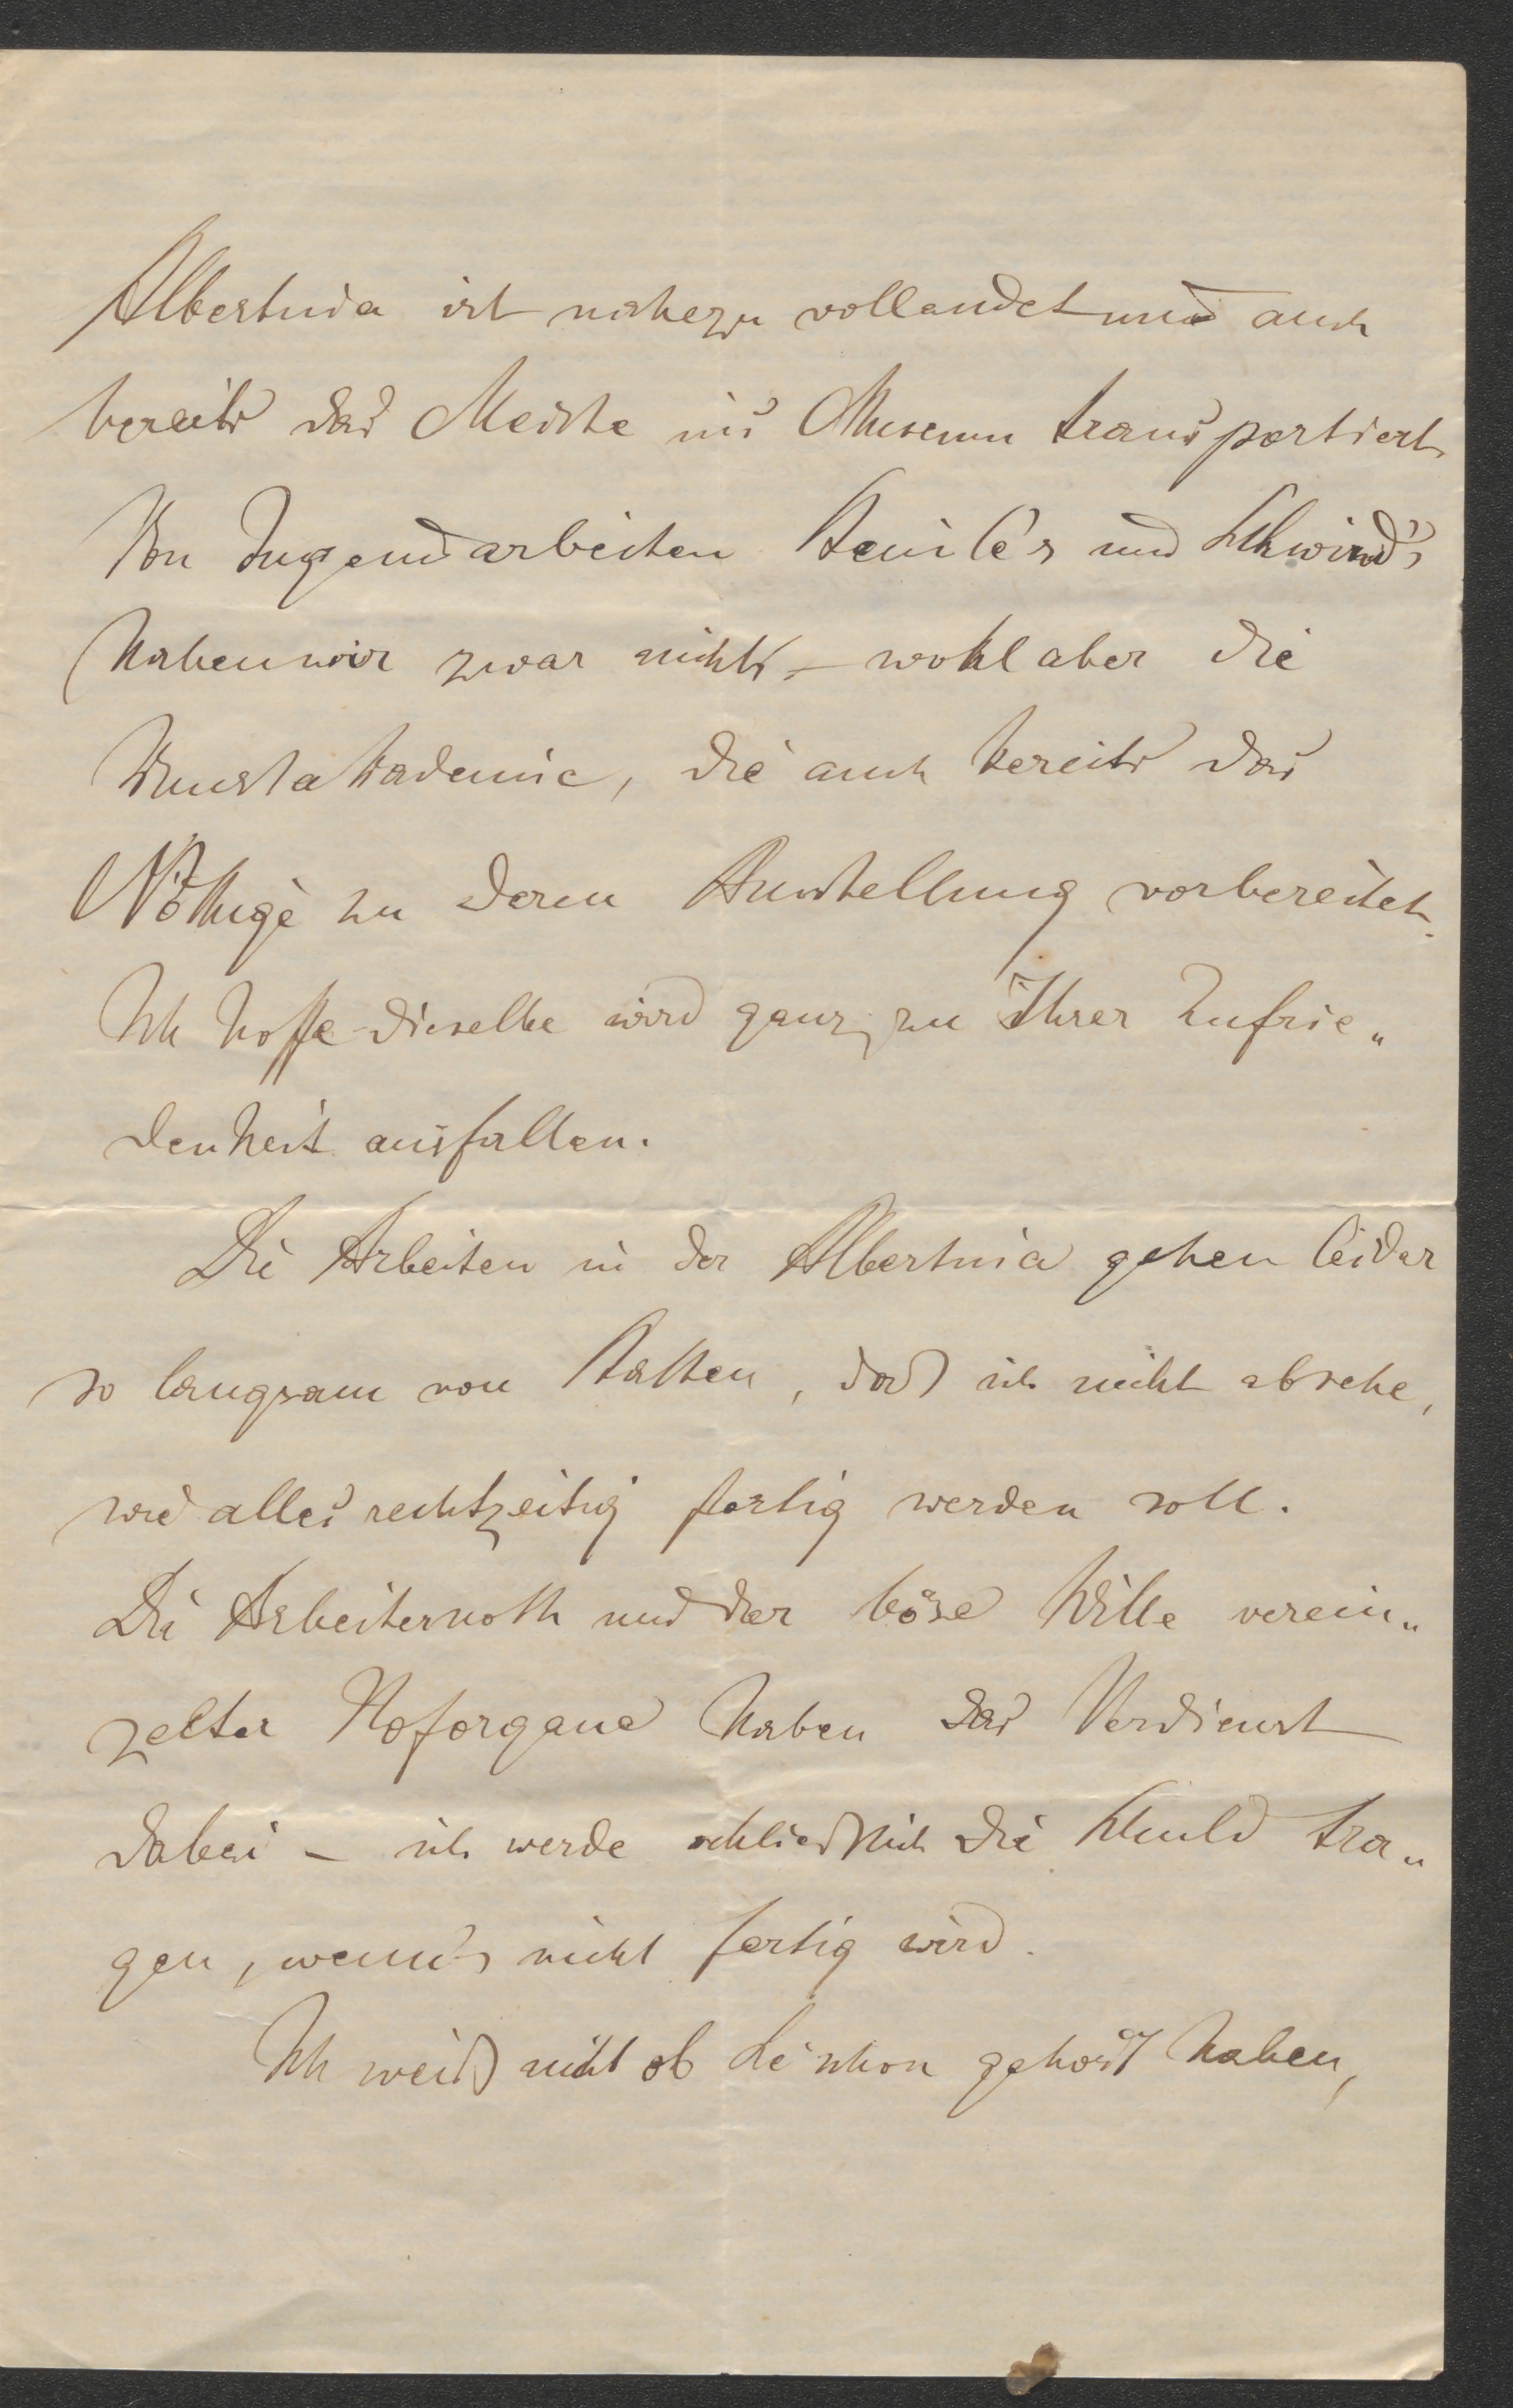 Albertina ist nahezu vollendet und auch
bereits das Meiste ins Museum transportiert.
Von Jugendarbeiten Steinle's und Schwind's
haben wir zwar nichts – wohl aber die
Kunstakademie, die auch bereits das
Nöthige zu deren Ausstellung vorbereitet.
Ich hoffe dieselbe wird ganz zu Ihrer Zufrie„
denheit ausfallen.
Die Arbeiten in der Albertina gehen leider
so langsam von Statten, daß ich nicht absehe,
wie alles rechtzeitig fertig werden soll.
Die Arbeiternoth und der böse Wille verein„
zelter Hoforgane haben das Verdienst
dabei – ich werde schließlich die Schuld tra„
gen, wenn's nicht fertig wird.
Ich weiß nicht ob Sie schon gehört haben,